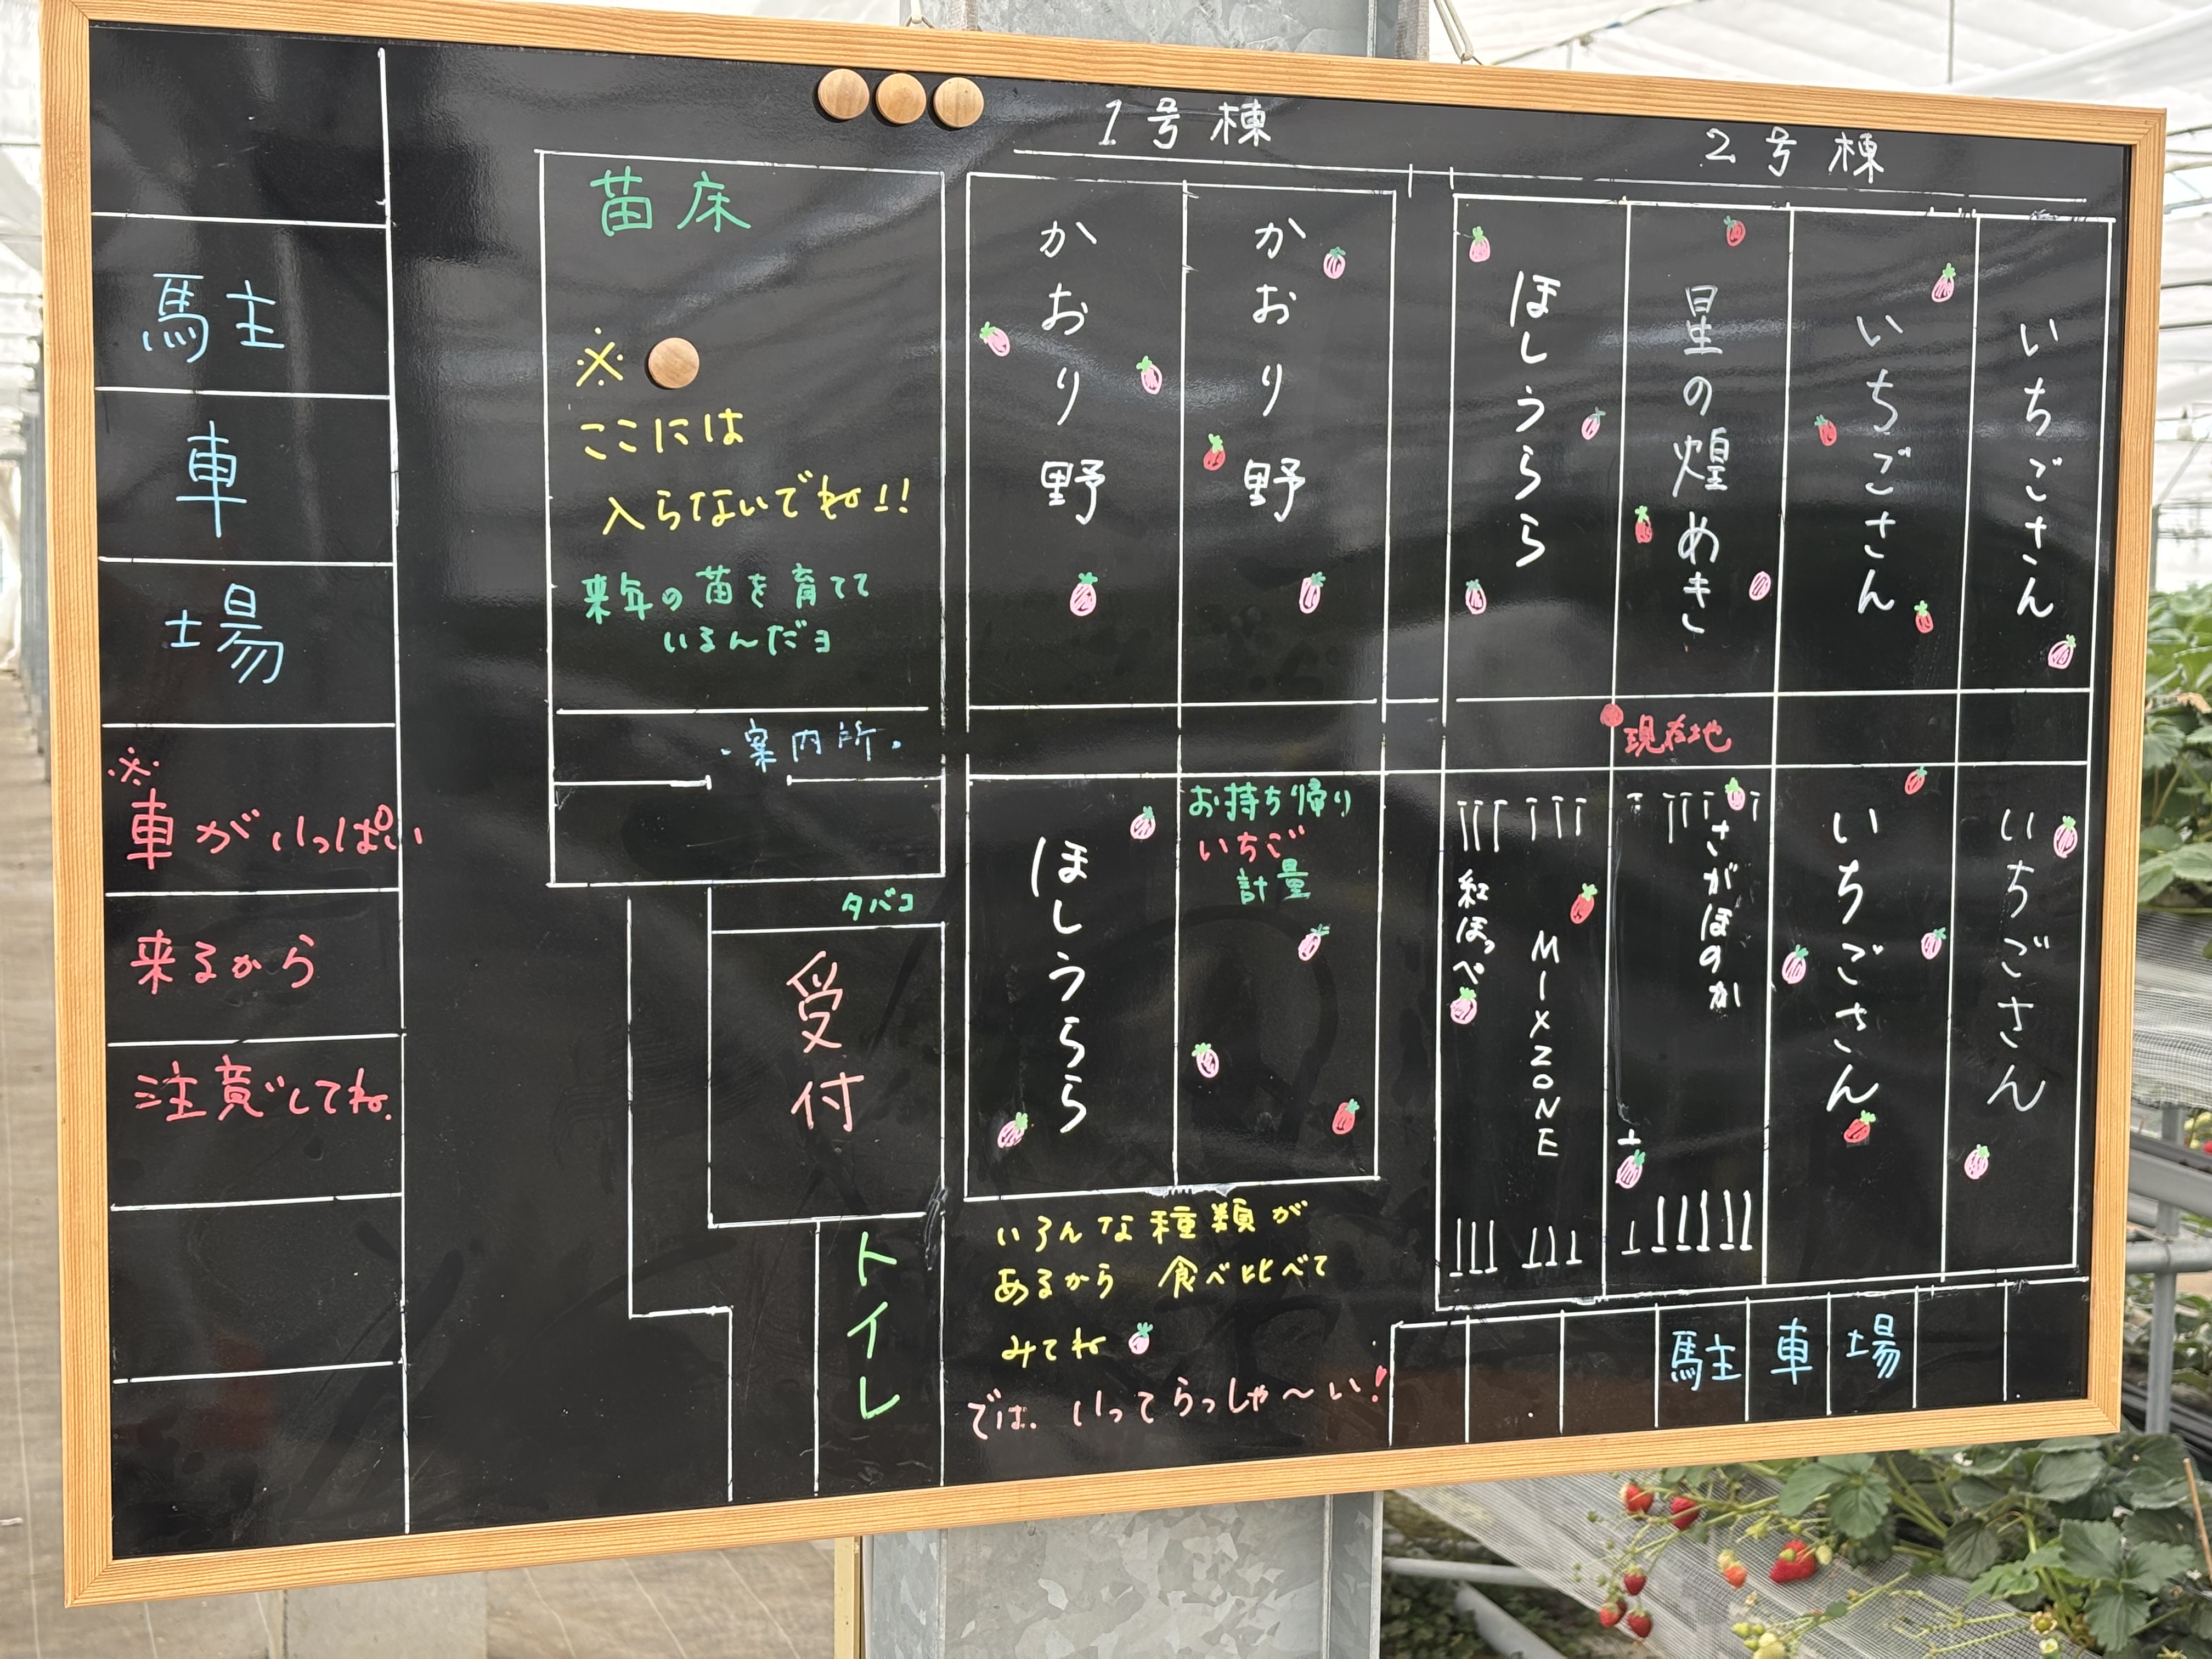 1号棟
2号棟
苗床
※
ここには
入らないでね!!
来年の苗を育てて
いるんだヨ
・案内所・
かおり野
かおり野
ほしうらら
星の煌めき
いちごさん
いちごさん
現在地
駐
車
場
※
車がいっぱい
来るから
注意してね。
タバコ
受付
トイレ
ほしうらら
お持ち帰り
いちご
計量
紅ほっぺ
MIXZONE
さがほのか
いちごさん
いちごさん
いろんな種類が
あるから 食べ比べて
みてね
では、いってらっしゃ〜い!
駐車場